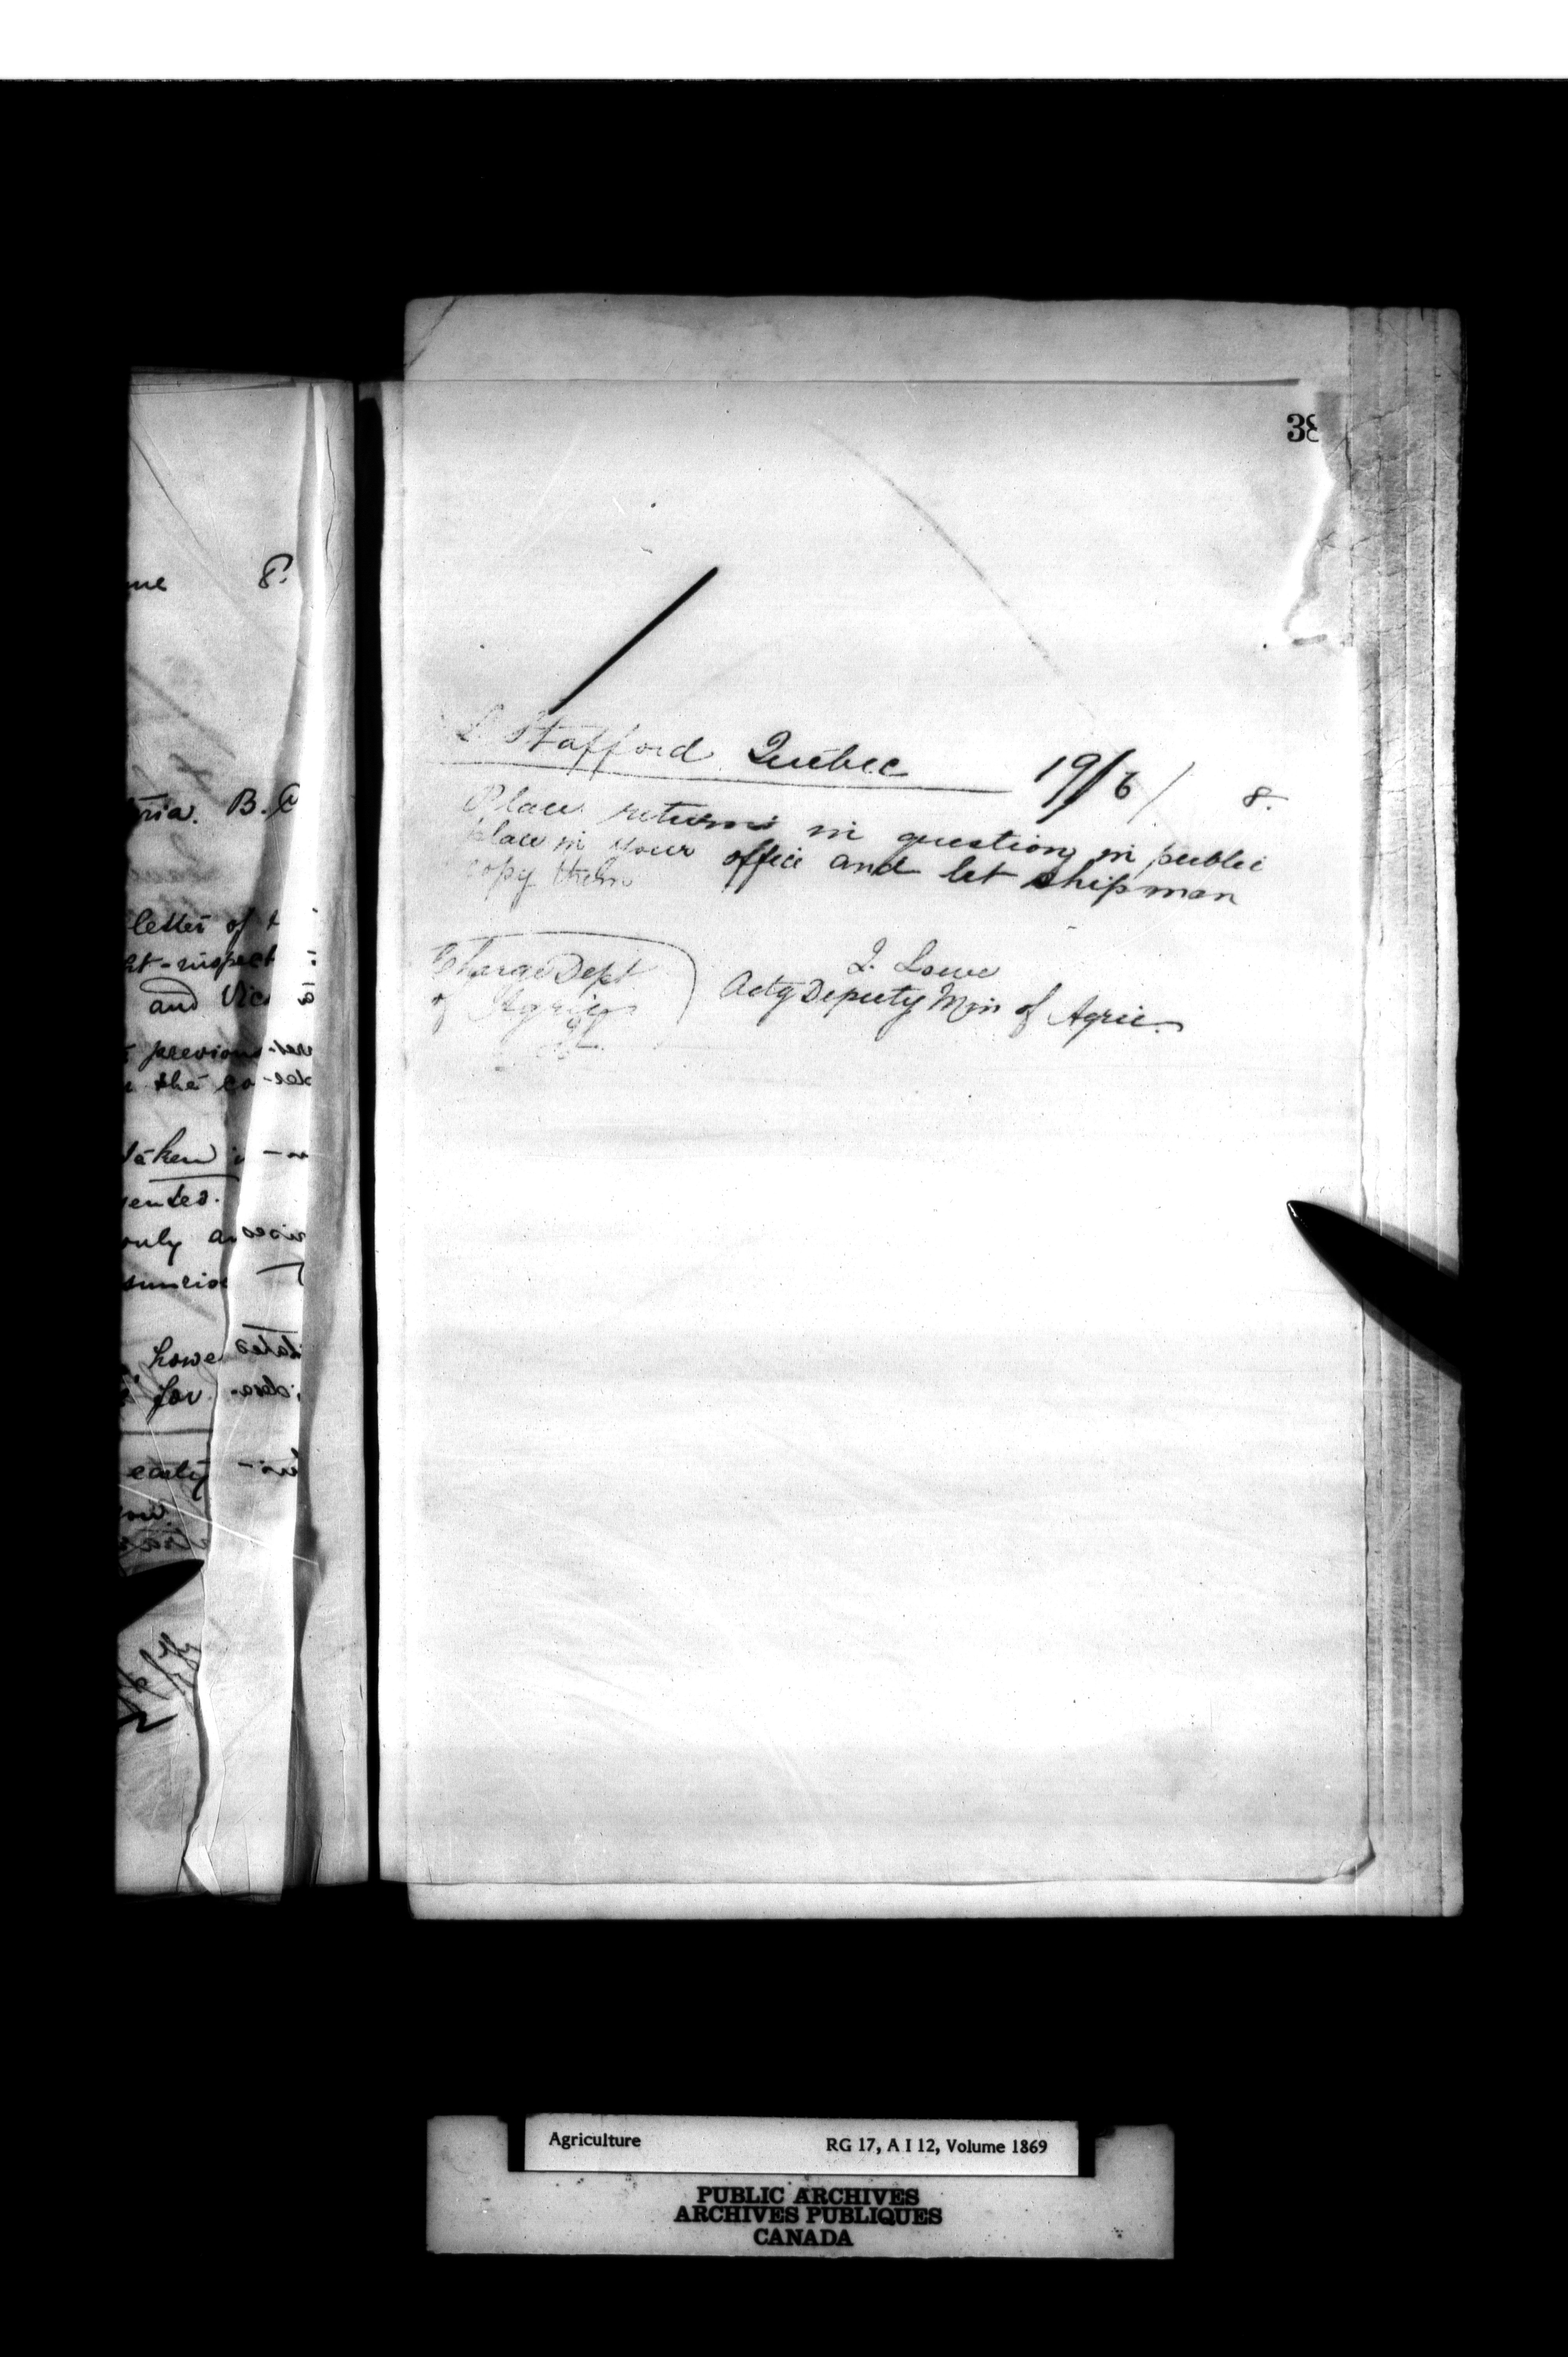 38
L. Stafford Quebec 19/6/ 8.
Place returns in question in public
place in your office and let shipman
copy them
Charge Dept
of Agric
J. Lowe
Actg Deputy Min of Agric.
8.
B.C
letter of
and Vic
previous
the co
taken
only
for
early
Agriculture RG 17, A I 12, Volume 1869
PUBLIC ARCHIVES
ARCHIVES PUBLIQUES
CANADA